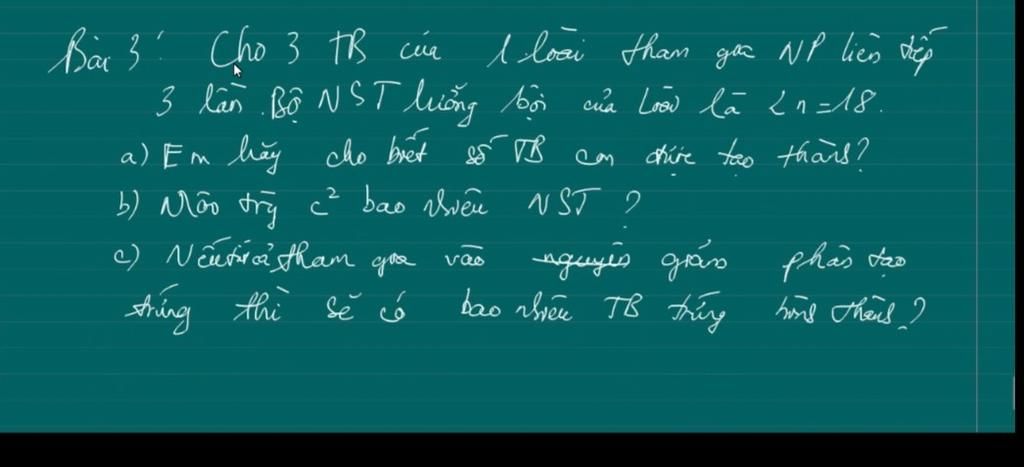 Bài 3: Cho 3 TB của 1 loài tham gia NP liên tiếp
3 lần. Bộ NST lưỡng bội của loài là 2n=18.
a) Em hãy cho biết số TB con được tạo thành?
b) Môi trg c² bao nhiêu NST?
c) Nếu tất cả tham gia vào nguyên giảm phân tạo
trứng thì sẽ có bao nhiêu TB trứng hình thành?